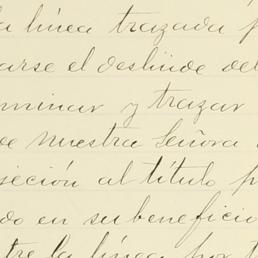 la línea trazada p
arse el deslinde del
minar y trazar
de nuestra Señora
sición al título p
do en su beneficio
tre la línea por t